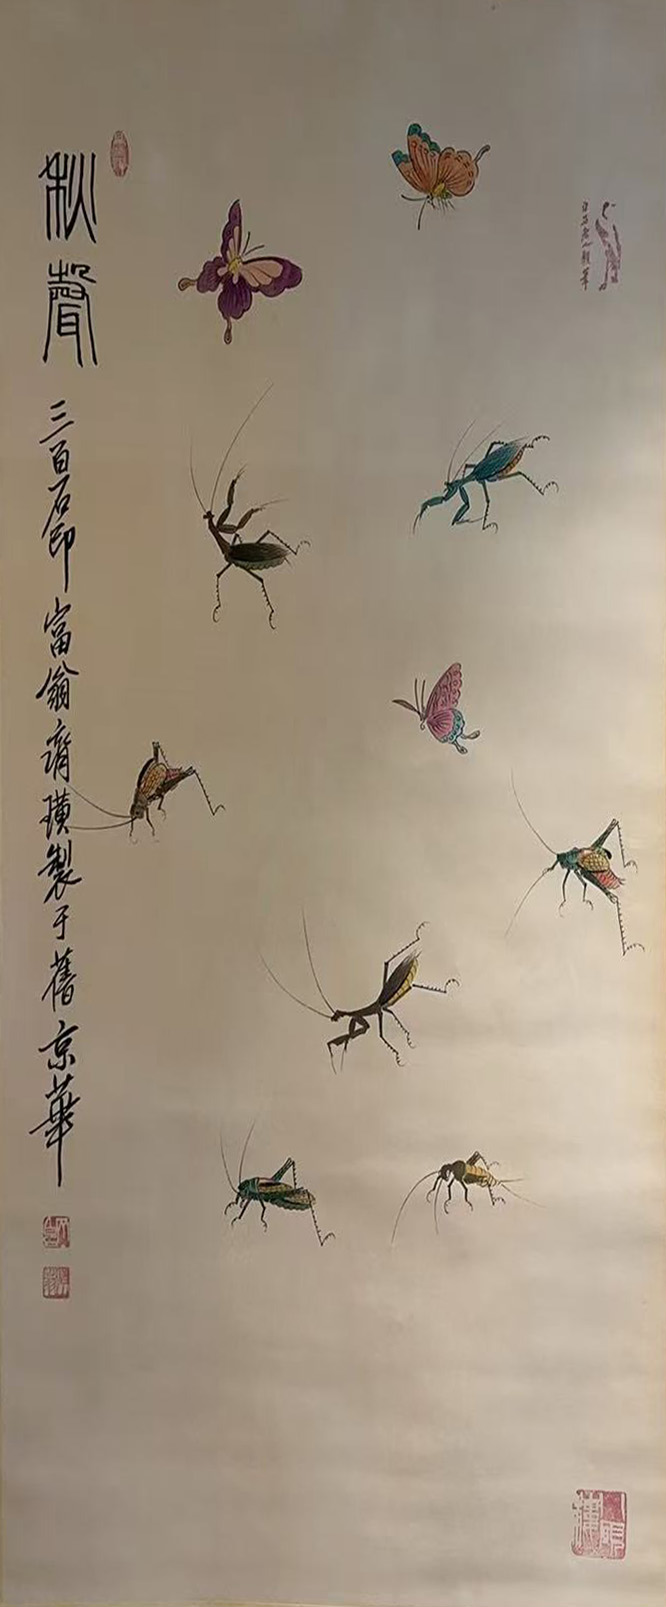 秋聲
三百石印富翁齊璜製于舊京華